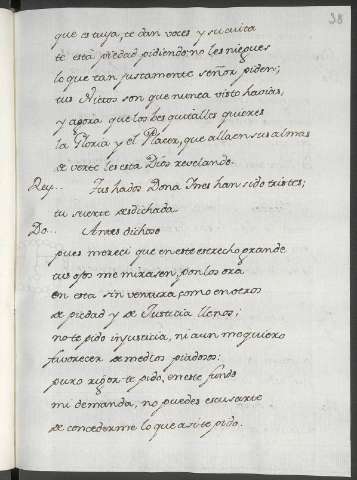 38
que es tuya, te dan voces y su cuita
te está piedad pidiendo; no les niegues
lo que tan justamente señor piden;
tus Nietos son que nunca visto habias,
y agora que los ves quitalles quieres
la Gloria y el Placer, que alla en sus almas
de verte les esta Dios revelando.
Rey... Tus hados Dona Ines han sido tristes;
tu suerte desdichada.
Do... Antes dichosa
pues mereci que en este estrecho grande
tus ojos me mirasen, ponlos ora
en esta sin ventura, como en otros
de piedad y de Justicia llenos;
no te pido injusticia, ni aun me quiero
favorecer de medios piadosos;
puro rigor te pido, en este fundo
mi demanda, no puedes escusarte
de concederme lo que asi te pido.